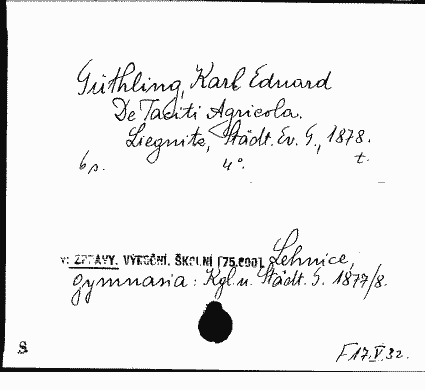 Güthling, Karl Eduard
De Taciti Agricola.
Liegnitz, Städt. Ev. G., 1878.
6 s. 4°. t.
v: ZPRÁVY. VÝROČNÍ. ŠKOLNÍ [75.600]. Lehnice,
gymnasia: Kgl. u. Städt. G. 1877/8.
S F17.V.32.